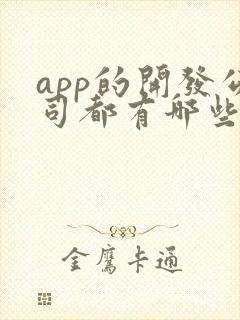 app的開發公
司都有哪些
金鷹卡通